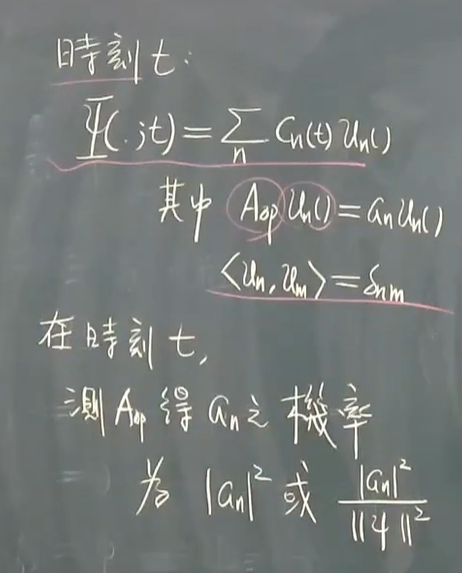 時刻 t:
Ψ(.;t) = ∑ₙ Cₙ(t) uₙ()
其中 A_op uₙ() = aₙ uₙ()
⟨uₙ, uₘ⟩ = δₙₘ
在時刻 t,
測 A_op 得 aₙ 之 機率
為 |aₙ|² 或 |aₙ|²/‖ψ‖²